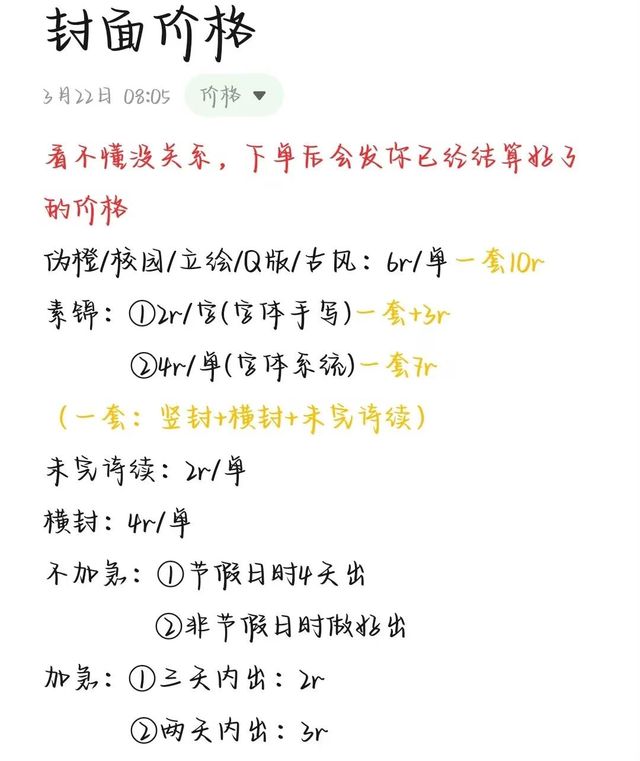 封面价格
3月22日 08:05 价格 ▼
看不懂没关系，下单后会发你已经结算好了
的价格
伪橙/校园/立绘/Q版/古风：6r/单一套10r
素锦：①2r/字(字体手写)一套+3r
②4r/单(字体系统)一套7r
（一套：竖封+横封+未完待续）
未完待续：2r/单
横封：4r/单
不加急：①节假日时4天出
②非节假日时做好出
加急：①三天内出：2r
②两天内出：3r